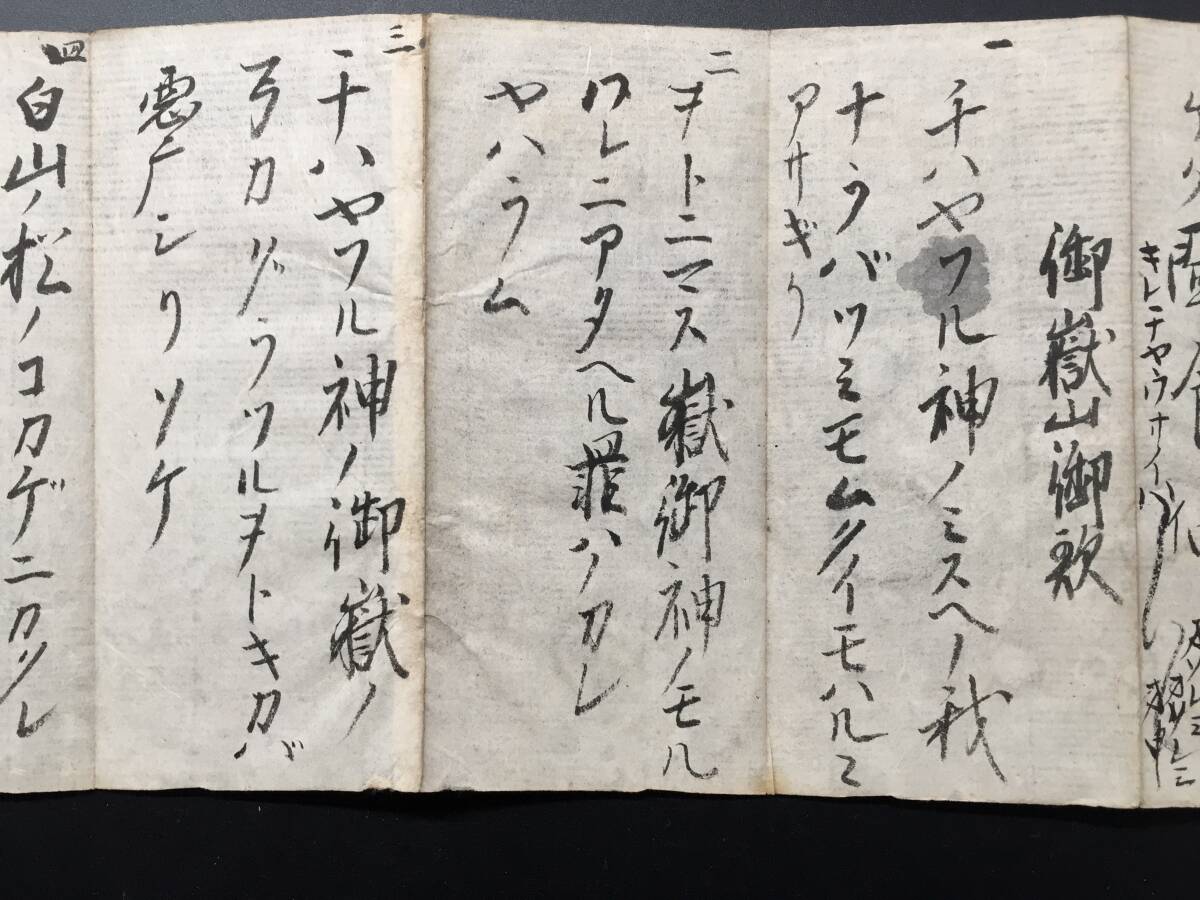 御嶽山御歌
一
千ハヤフル神ノミスヘノ我
ナラバツミモムクイモハルミ
アサギリ
二
ヲトニマス嶽御神ノモル
ワレニアタヘル罪ハノカレ
ヤハラム
三
千ハヤフル神ノ御嶽ノ
弓カグラツルヲトキカバ
悪广シリソケ
四
白山ノ松ノコカゲニカクレ